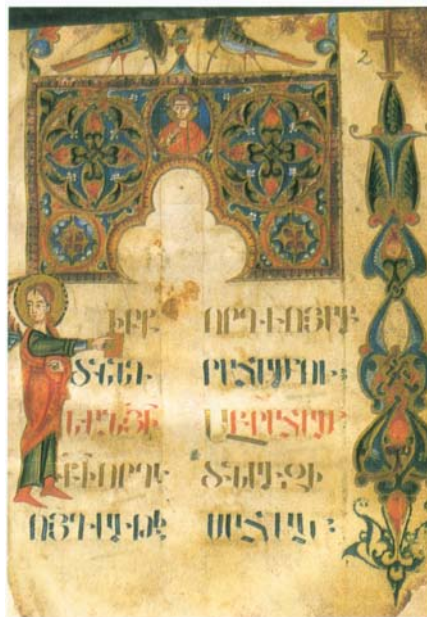 2
ԻՐՔ
ԾՆՆԴ
ԵԱՆ ՅԻ
ՔԻ ՈՐԴՒ
ՈՅ ԴԱՒԹԻ
ՈՐԴՒՈՅ ԱԲ
ՐԱՀԱՄՈՒ:
ԱԲՐԱՀԱՄ
ԾՆԱՒ ԶԻ
ՍԱՀԱԿ: